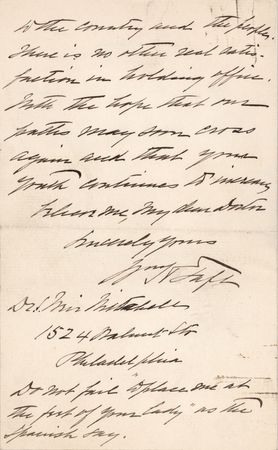 to the country and the people.
There is no other real satis-
faction in holding office.
With the hope that our
paths may soon cross
again and that your
youth continues to increase
believe me, my dear Doctor
Sincerely yours
Wm H Taft
Dr S. Weir Mitchell
1524 Walnut Str
Philadelphia
Do not fail "to place me at
the feet of your lady" as the
Spanish say.